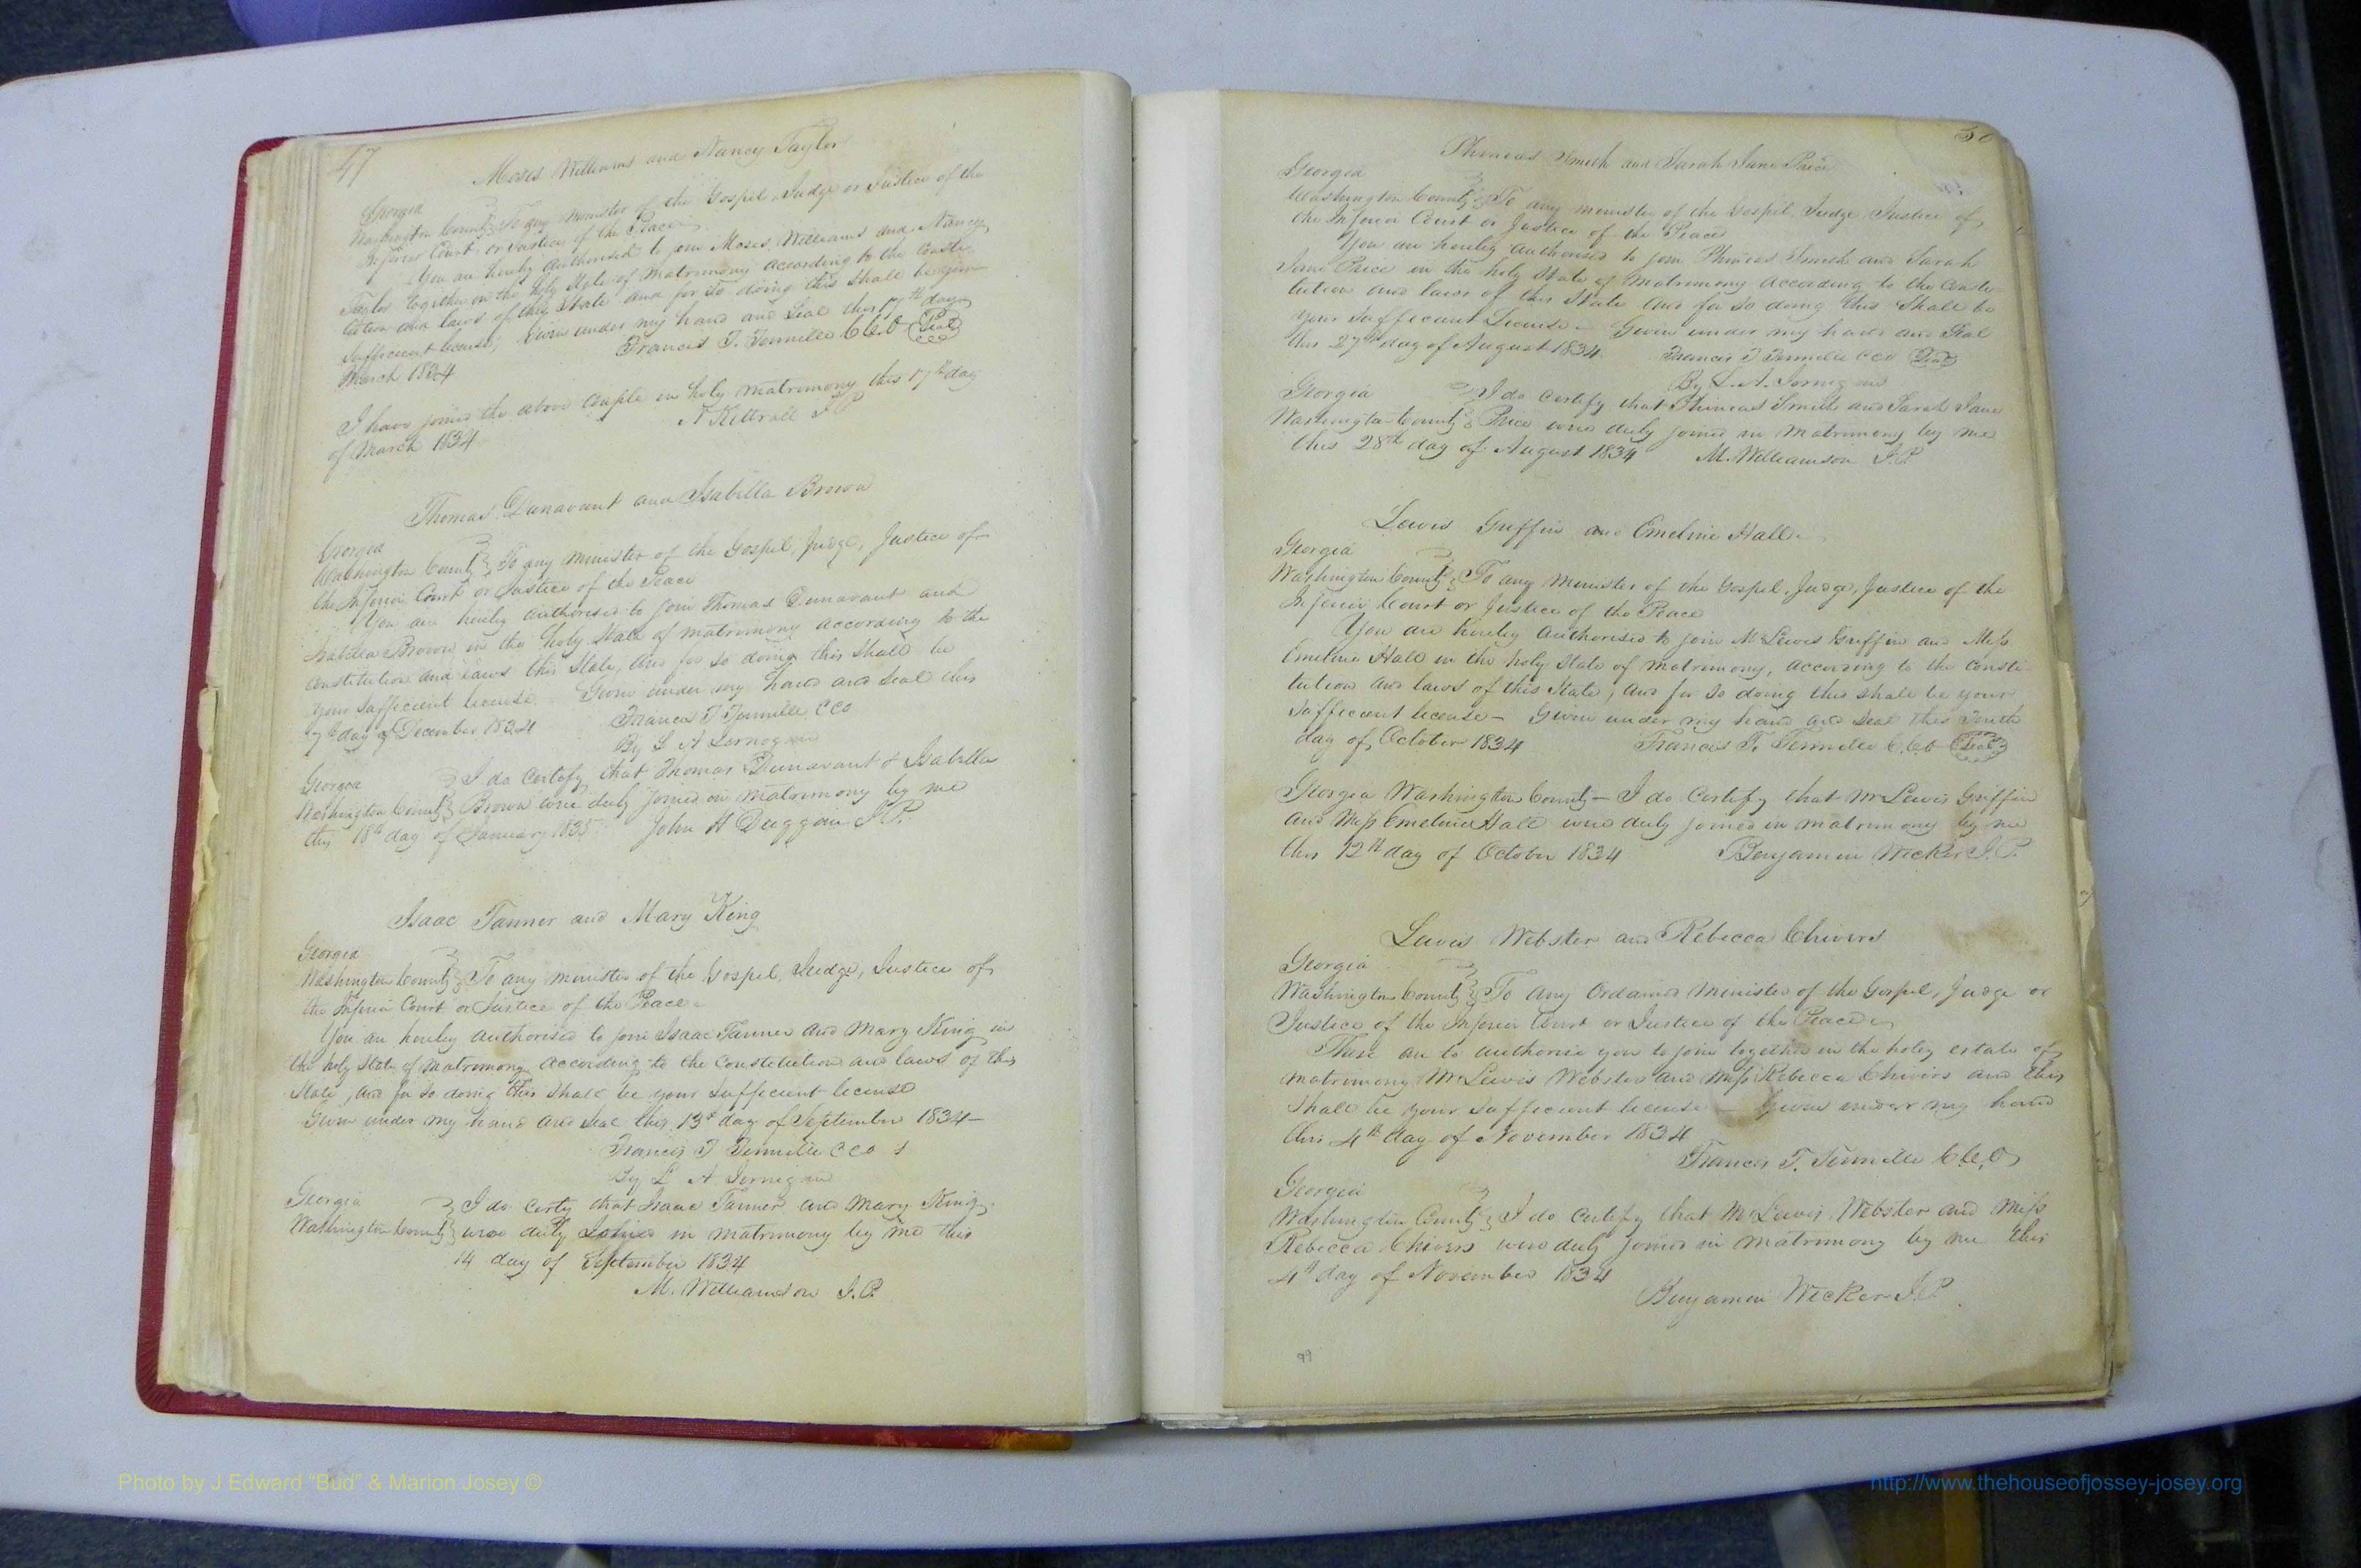 47
Moses Williams and Nancy Taylor
Georgia
Washington County To any minister of the Gospel, Judge or Justice of the
Inferior Court or Justice of the Peace
You are hereby authorised to join Moses Williams and Nancy
Taylor together in the holy State of matrimony according to the Consti-
tution and laws of this State and for so doing this shall be your
Sufficient license, Given under my hand and Seal this 17th day
March 1834 Francis T. Tennille C.C.O Seal
I have joined the above couple in holy matrimony this 17th day
of March 1834 N Kittrall J P
Thomas Dunavant and Isabella Brown
Georgia
Washington County To any minister of the Gospel, Judge, Justice of
the Inferior Court or Justice of the Peace
You are hereby authorised to join Thomas Dunavant and
Isabella Brown in the holy State of matrimony according to the
constitution and laws this State, and for so doing this shall be
your sufficient license Given under my hand and seal this
7th day of December 1834 Francis T Tennille CCO
By L A Jernigan
Georgia I do certify that Thomas Dunavant & Isabella
Washington County Brown were duly joined in matrimony by me
this 18th day of January 1835 John H Duggan J.P.
Isaac Tanner and Mary King
Georgia
Washington County To any minister of the Gospel, Judge, Justice of
the Inferior Court or Justice of the Peace
You are hereby authorised to join Isaac Tanner and Mary King in
the holy State of matrimony according to the Constitution and laws of this
State, and for so doing this shall be your sufficient license
Given under my hand and seal this 13th day of September 1834
Francis T Tennille CCO
By L A Jernigan
Georgia I do certy that Isaac Tanner and Mary King
Washington County were duly joined in matrimony by me this
14 day of September 1834
M. Williamson J.P.
Phineas Smith and Sarah Jane Price
Georgia
Washington County To any minister of the Gospel, Judge, Justice of
the Inferior Court or Justice of the Peace
You are hereby authorised to join Phineas Smith and Sarah
Jane Price in the holy State of matrimony according to the Consti-
tution and laws of this State and for so doing this shall be
your sufficient License - Given under my hand and Seal
this 27th day of August 1834 Francis T Tennille CCO Seal
By L. A. Jernigan
Georgia I do certify that Phineas Smith and Sarah Jane
Washington County Price were duly joined in matrimony by me
this 28th day of August 1834 M. Williamson J.P.
Lewis Griffin and Emeline Hall
Georgia
Washington County To any minister of the Gospel, Judge, Justice of the
Inferior Court or Justice of the Peace
You are hereby authorised to join Mr Lewis Griffin and Miss
Emeline Hall in the holy State of matrimony, according to the consti-
tution and laws of this State, and for so doing this shall be your
sufficient license - Given under my hand and seal this Tenth
day of October 1834 Francis T. Tennille C.C.O Seal
Georgia Washington County - I do certify that Mr Lewis Griffin
and Miss Emeline Hall were duly joined in matrimony by me
this 12th day of October 1834 Benjamin Wicker J.P.
Lewis Webster and Rebecca Chivers
Georgia
Washington County To any Ordained Minister of the Gospel, Judge or
Justice of the Inferior Court or Justice of the Peace
These are to authorise you to join together in the holy estate of
matrimony Mr Lewis Webster and Miss Rebecca Chivers and this
shall be your sufficient license - Given under my hand
this 4th day of November 1834
Francis T. Tennille C.C.O
Georgia
Washington County I do certify that Mr Lewis Webster and Miss
Rebecca Chivers were duly joined in matrimony by me this
4th day of November 1834
Benjamin Wicker J.P.
99
Photo by J Edward "Bud" & Marion Josey ©
http://www.thehouseofjossey-josey.org